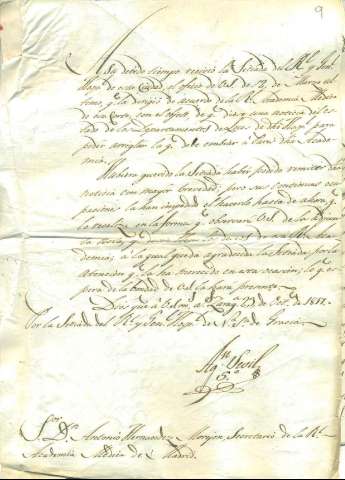 9
A su debido tiempo recivió la Sitiada del Rl. y Genl.
Hospl. de esta Ciudad el oficio de Vd. de 12 de Marzo ul-
timo, qe. la dirijió de acuerdo de la Rl. Academia Médica
de esa Corte, con el objeto de qe. diese una noticia del es-
tado de los Departamentos de Locos de dho Hospl. para
poder arreglar la qe. debe embiar à otra Academia
Hubiera querido la Sitiada haber podido remitir dha
noticia con mayor brevedad, pero sus continuas ocu-
paciones la han impedido el hacerlo hasta de ahora, y
la remite en la forma qe. observará Vd. de la adjun-
ta
demia, à la qual queda agradecida la Sitiada por la
atencion qe. la ha merecido en esta ocasión, lo qe. es-
pera de la bondad de Vd. la hará presente.
Dios gue. à Vd. ms. as. Zaragza. 23 de Oct. de 1817.
Por la Sitiada del Rl. y Genl. Hospl. de N. Sa. de Gracia
Agn. Sevil
So.
Sor. Dn. Antonio Hernandez Morejon, Secretario de la Rl.
Academia Médica de Madrid.